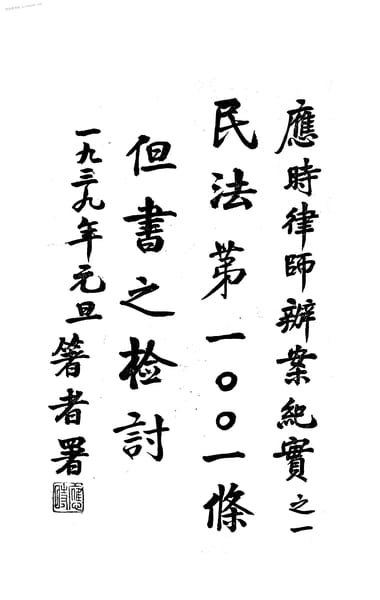 應時律師辦案紀實之一
民法第一〇〇一條
但書之檢討
一九三九年元旦 著者署
應時